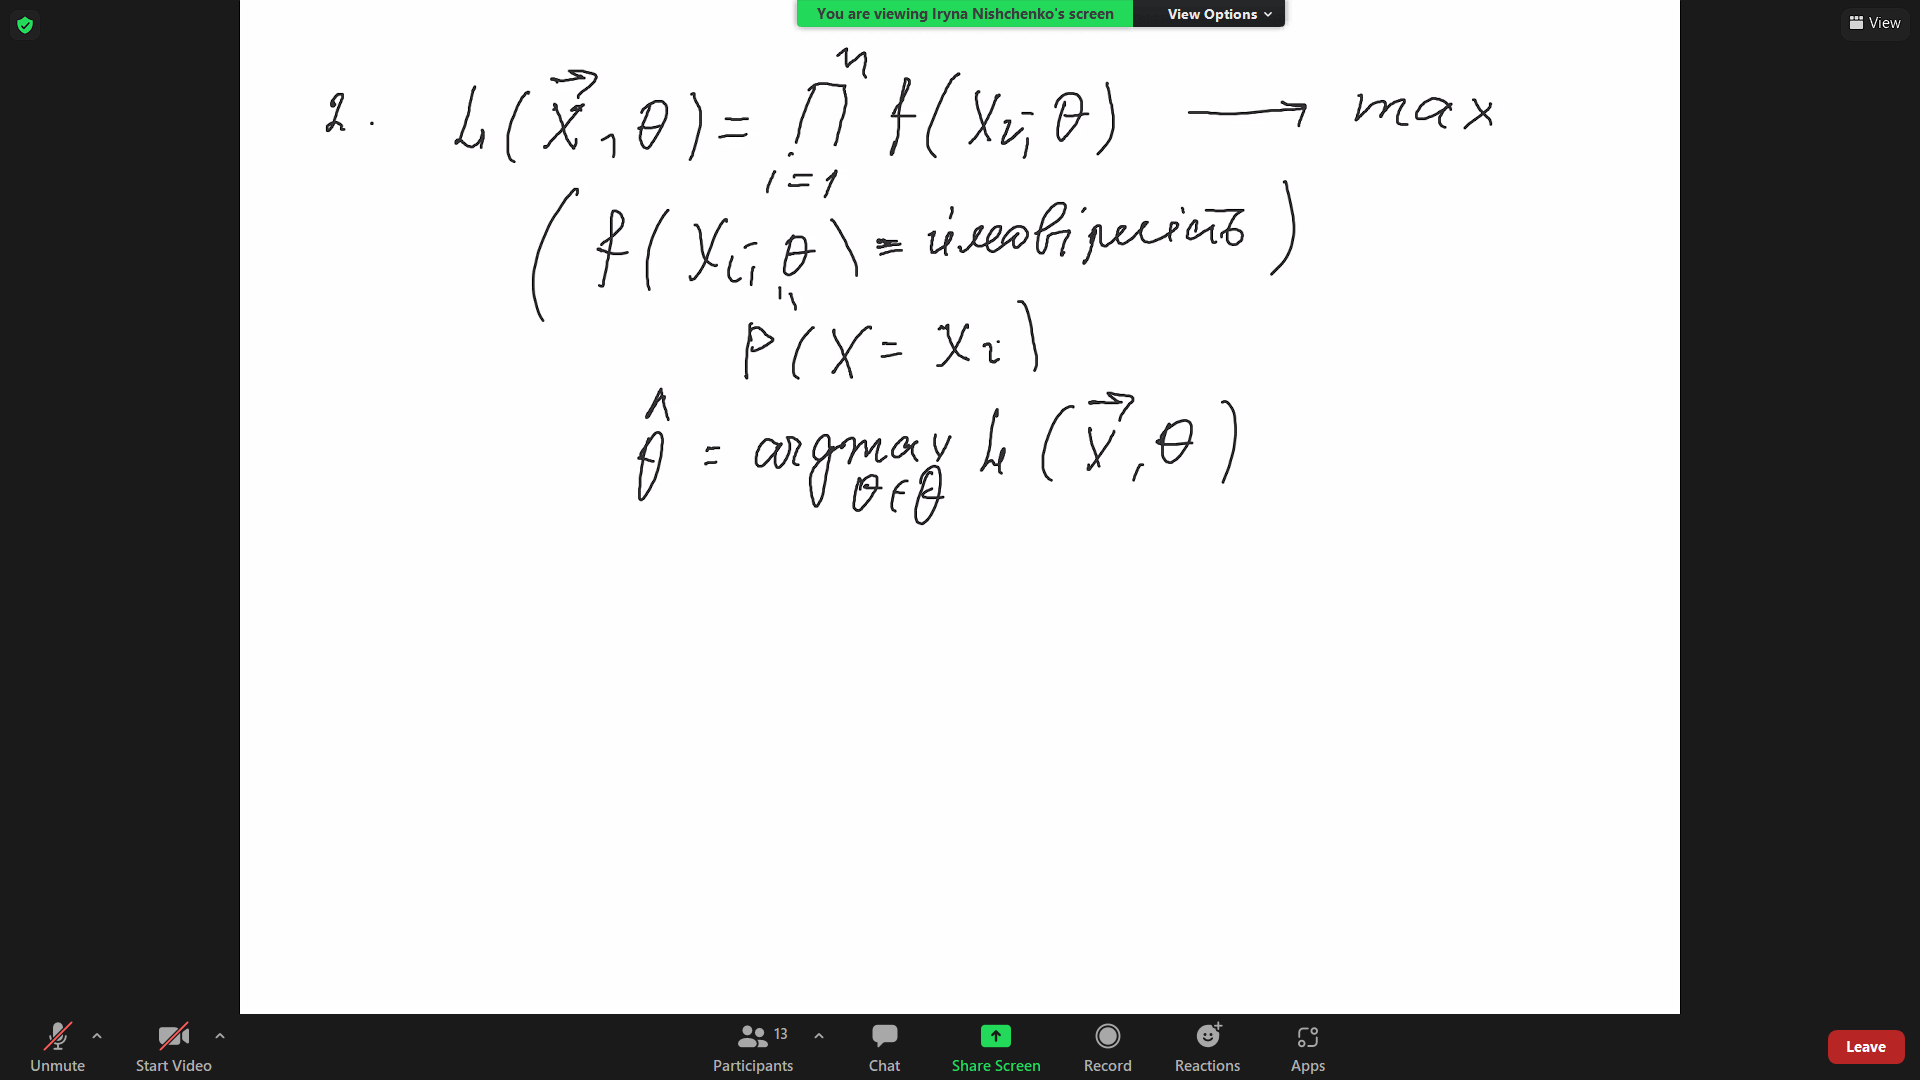 You are viewing Iryna Nishchenko's screen View Options
View
2. L(X⃗, θ) = ∏ⁿᵢ₌₁ f(Xᵢ; θ) ⟶ max
(f(Xᵢ; θ) = ймовірність)
"
P(X = Xᵢ)
θ̂ = argmax L(X⃗, θ)
θ∈Θ
Unmute Start Video Participants 13 Chat Share Screen Record Reactions Apps Leave